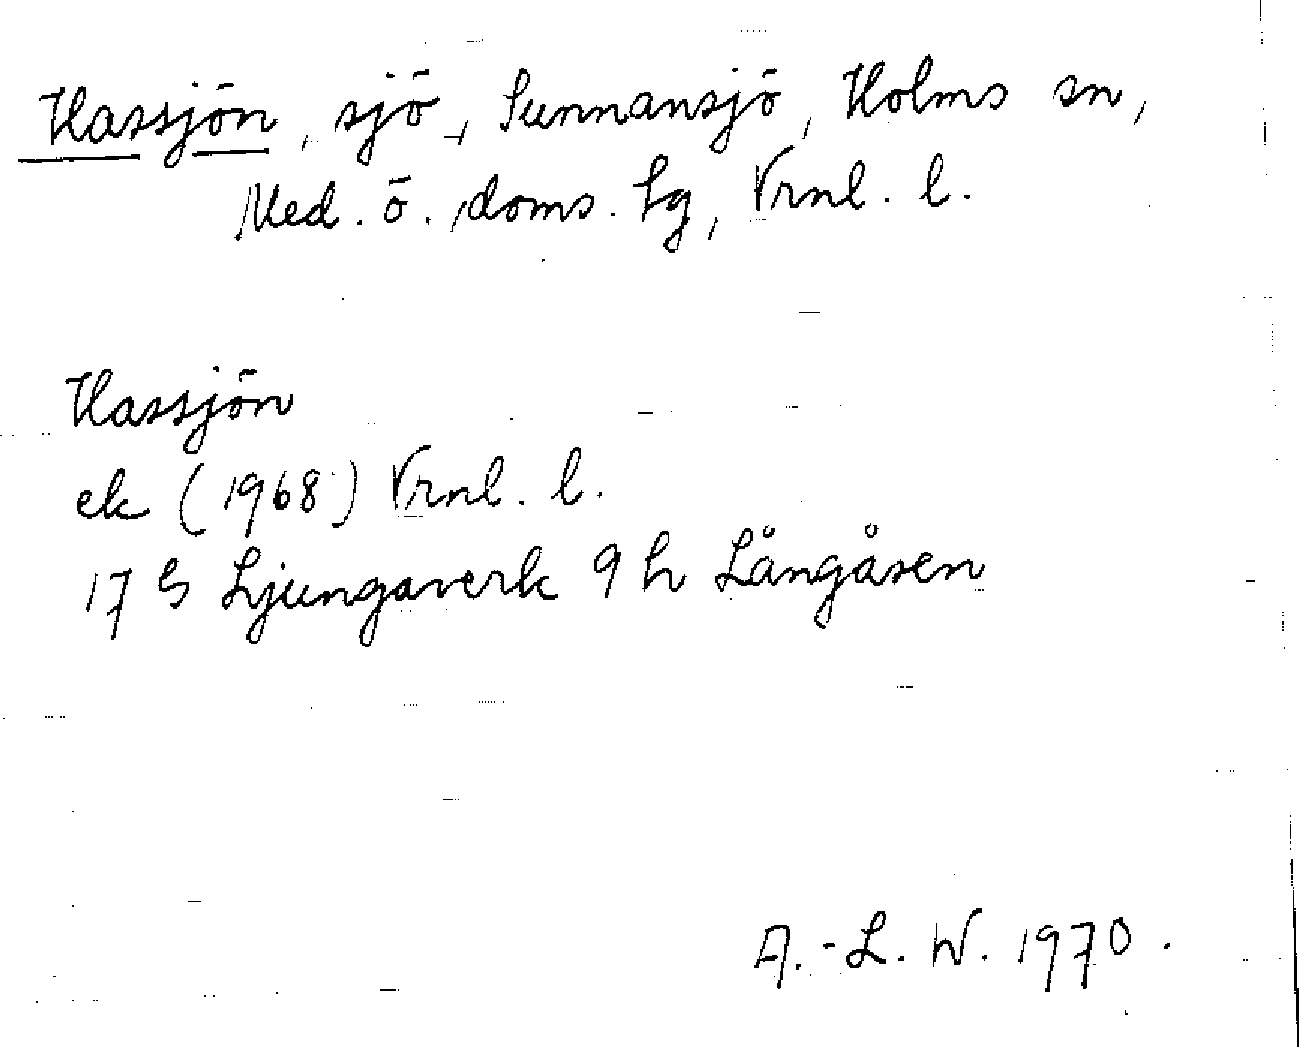 Hassjön, sjö, Sunnansjö, Holms sn,
Med. ö. doms. lg, Vrnl. l.
Hassjön
ek (1968) Vrnl. l.
17 G Ljungaverk 9 h Långåsen
A.-L. W. 1970.